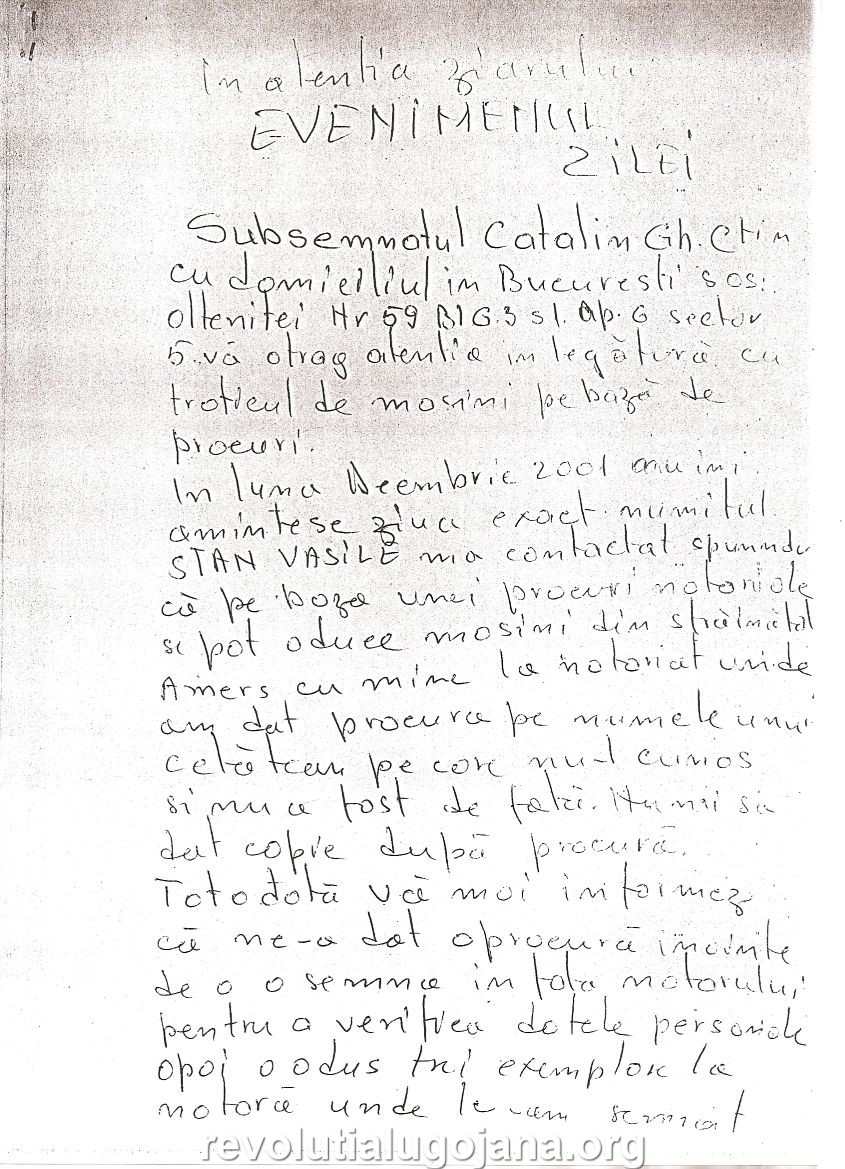 in atentia ziarului
EVENIMENTUL
ZILEI
Subsemnatul Catalin Gh. Ctin
cu domiciliul in Bucuresti sos:
oltenitei Nr 59 Bl G.3 s1. Ap. 6 sector
5. vă atrag atentia in legătură cu
traficul de masini pe bază de
procuri.
In luna Decembrie 2001 nu imi
amintesc ziua exact numitul
STAN VASILE ma contactat spunndu
că pe baza unei procuri notoriale
se pot aduce masini din străinătat
Amers cu mine la notoriat unde
am dat procura pe numele unui
cetătean pe care nu-l cunos
si nu a fost de fată. Nu mi sa
dat copie după procură.
Totodotă vă mai informez
că ne-a dat o procură inainte
de a o semna in fata notorului
pentru a verifica datele personale
apoi a adus trei exemplare la
notoră unde le-am semnat
revolutialugojana.org